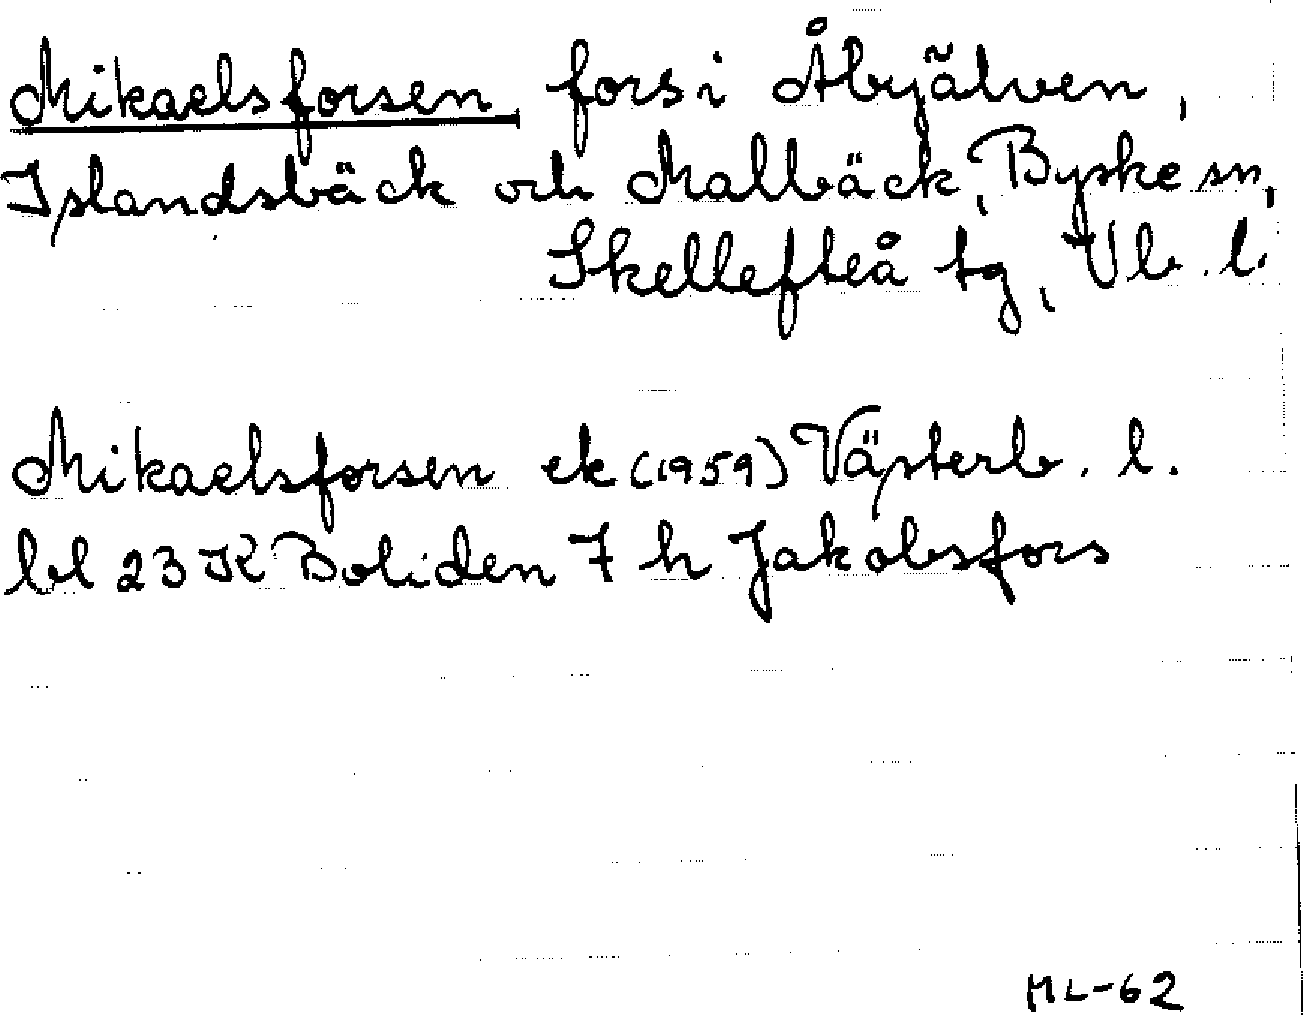 Mikaelsforsen, fors i Åbyälven,
Islandsbäck och Mallbäck, Byske sn,
Skellefteå tg, Vb. l.
Mikaelsforsen ek (1959) Västerb. l.
bl 23 K Boliden 7 h Jakobsfors
ML-62